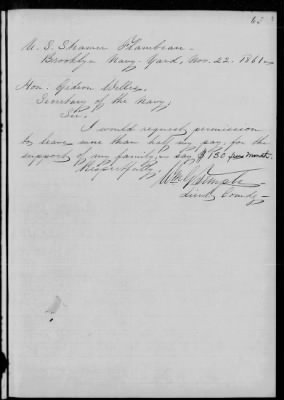 U. S. Steamer Flambeau
Brooklyn Navy-Yard, Nov. 22. 1861
Hon. Gideon Welles,
Secretary of the Navy,
Sir.
I would request permission
to leave more than half my pay, for the
support of my family, say $130 per month.
Respectfully,
Wm G Temple
Lieut Comdg